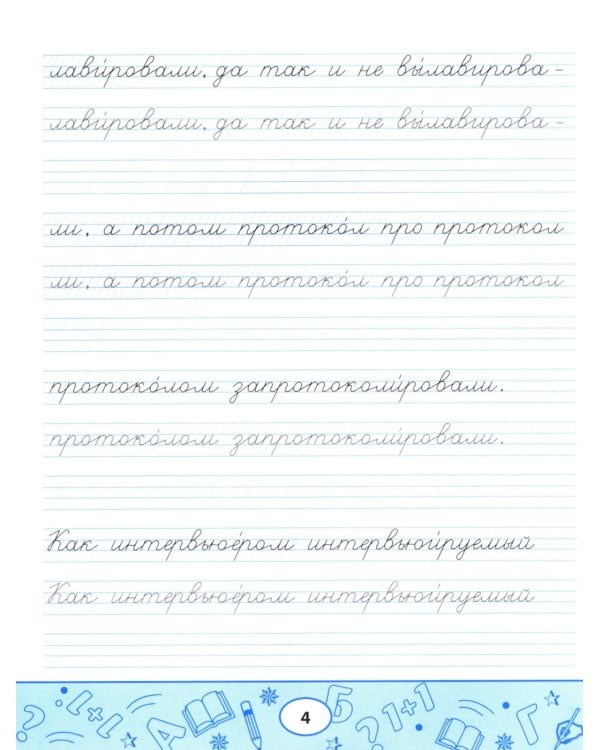 лави́ровали, да так и не вы́лавирова-
лави́ровали, да так и не вы́лавирова-
ли, а потом протоко́л про протокол
ли, а потом протоко́л про протокол
протоко́лом запротоколи́ровали.
протоко́лом запротоколи́ровали.
Как интервьюе́ром интервьюи́руемый
Как интервьюе́ром интервьюи́руемый
? 1+1 А 4 Б ? 1+1 Г